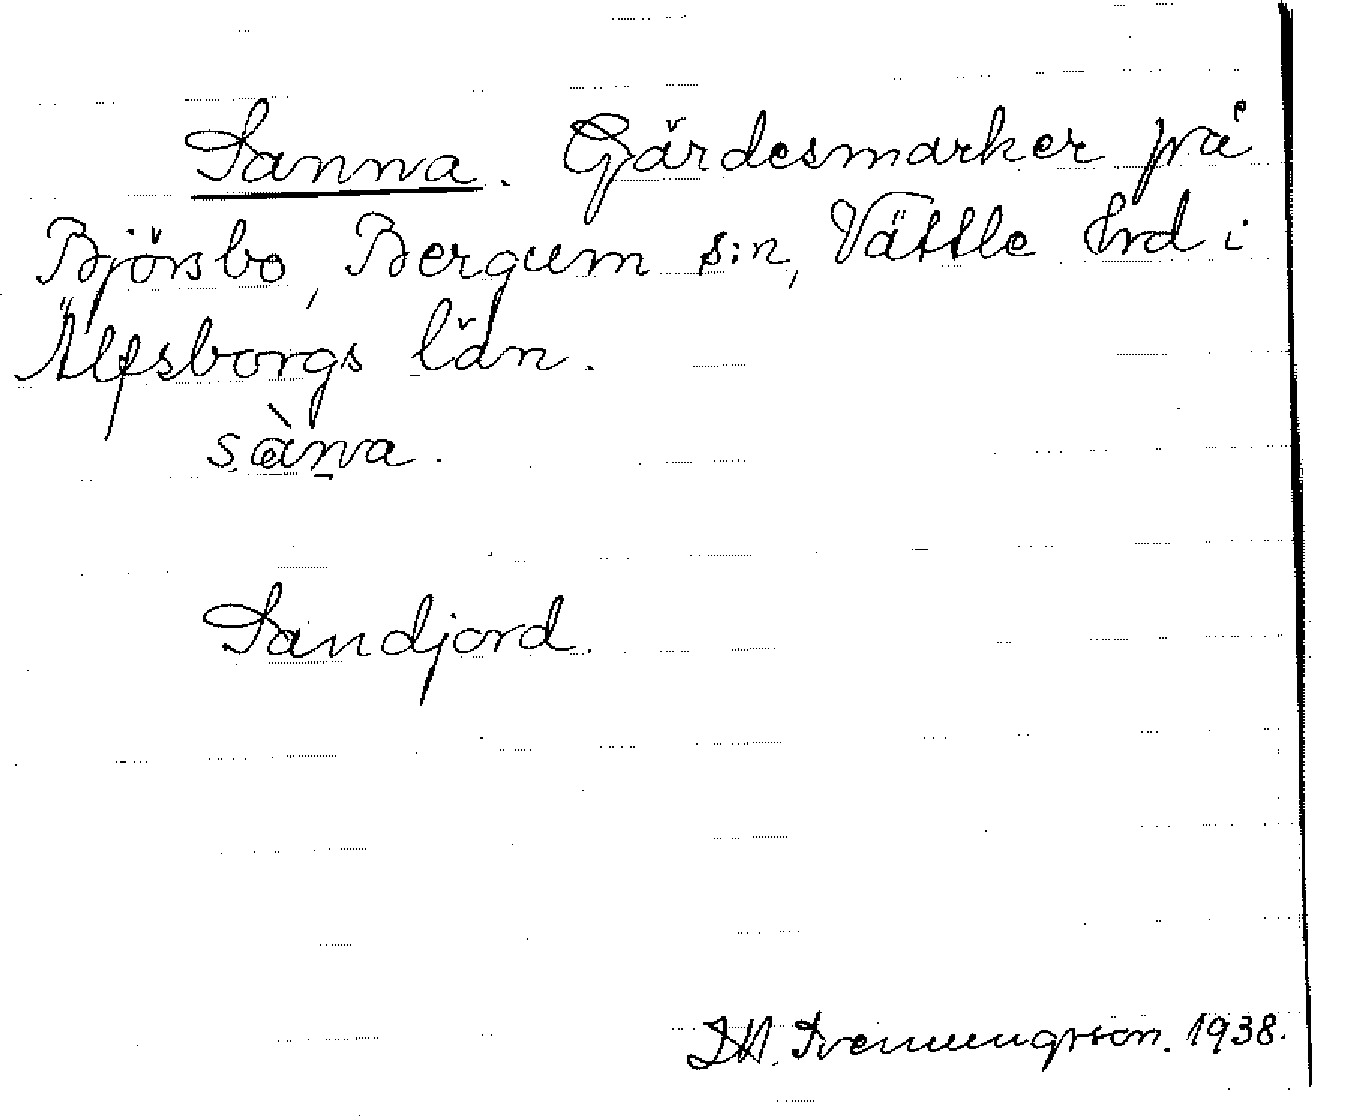 Sanna. Gärdesmarker på
Björsbo, Bergum s:n, Vättle hrd i
Älfsborgs län.
sàṉa.
Sandjord.
Svenungsson. 1938.